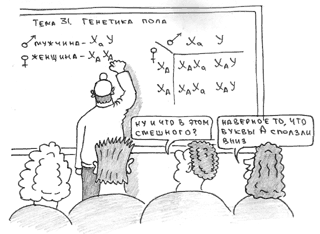 ТЕМА 31. ГЕНЕТИКА ПОЛА
♂ МУЖЧИНА - Xа У
♀ ЖЕНЩИНА - XА XА
♂ Xа У
♀
XА XАXа XАУ
XА XАXа XАУ
НУ И ЧТО В ЭТОМ
СМЕШНОГО?
НАВЕРНОЕ ТО, ЧТО
БУКВЫ А СПОЛЗЛИ
ВНИЗ